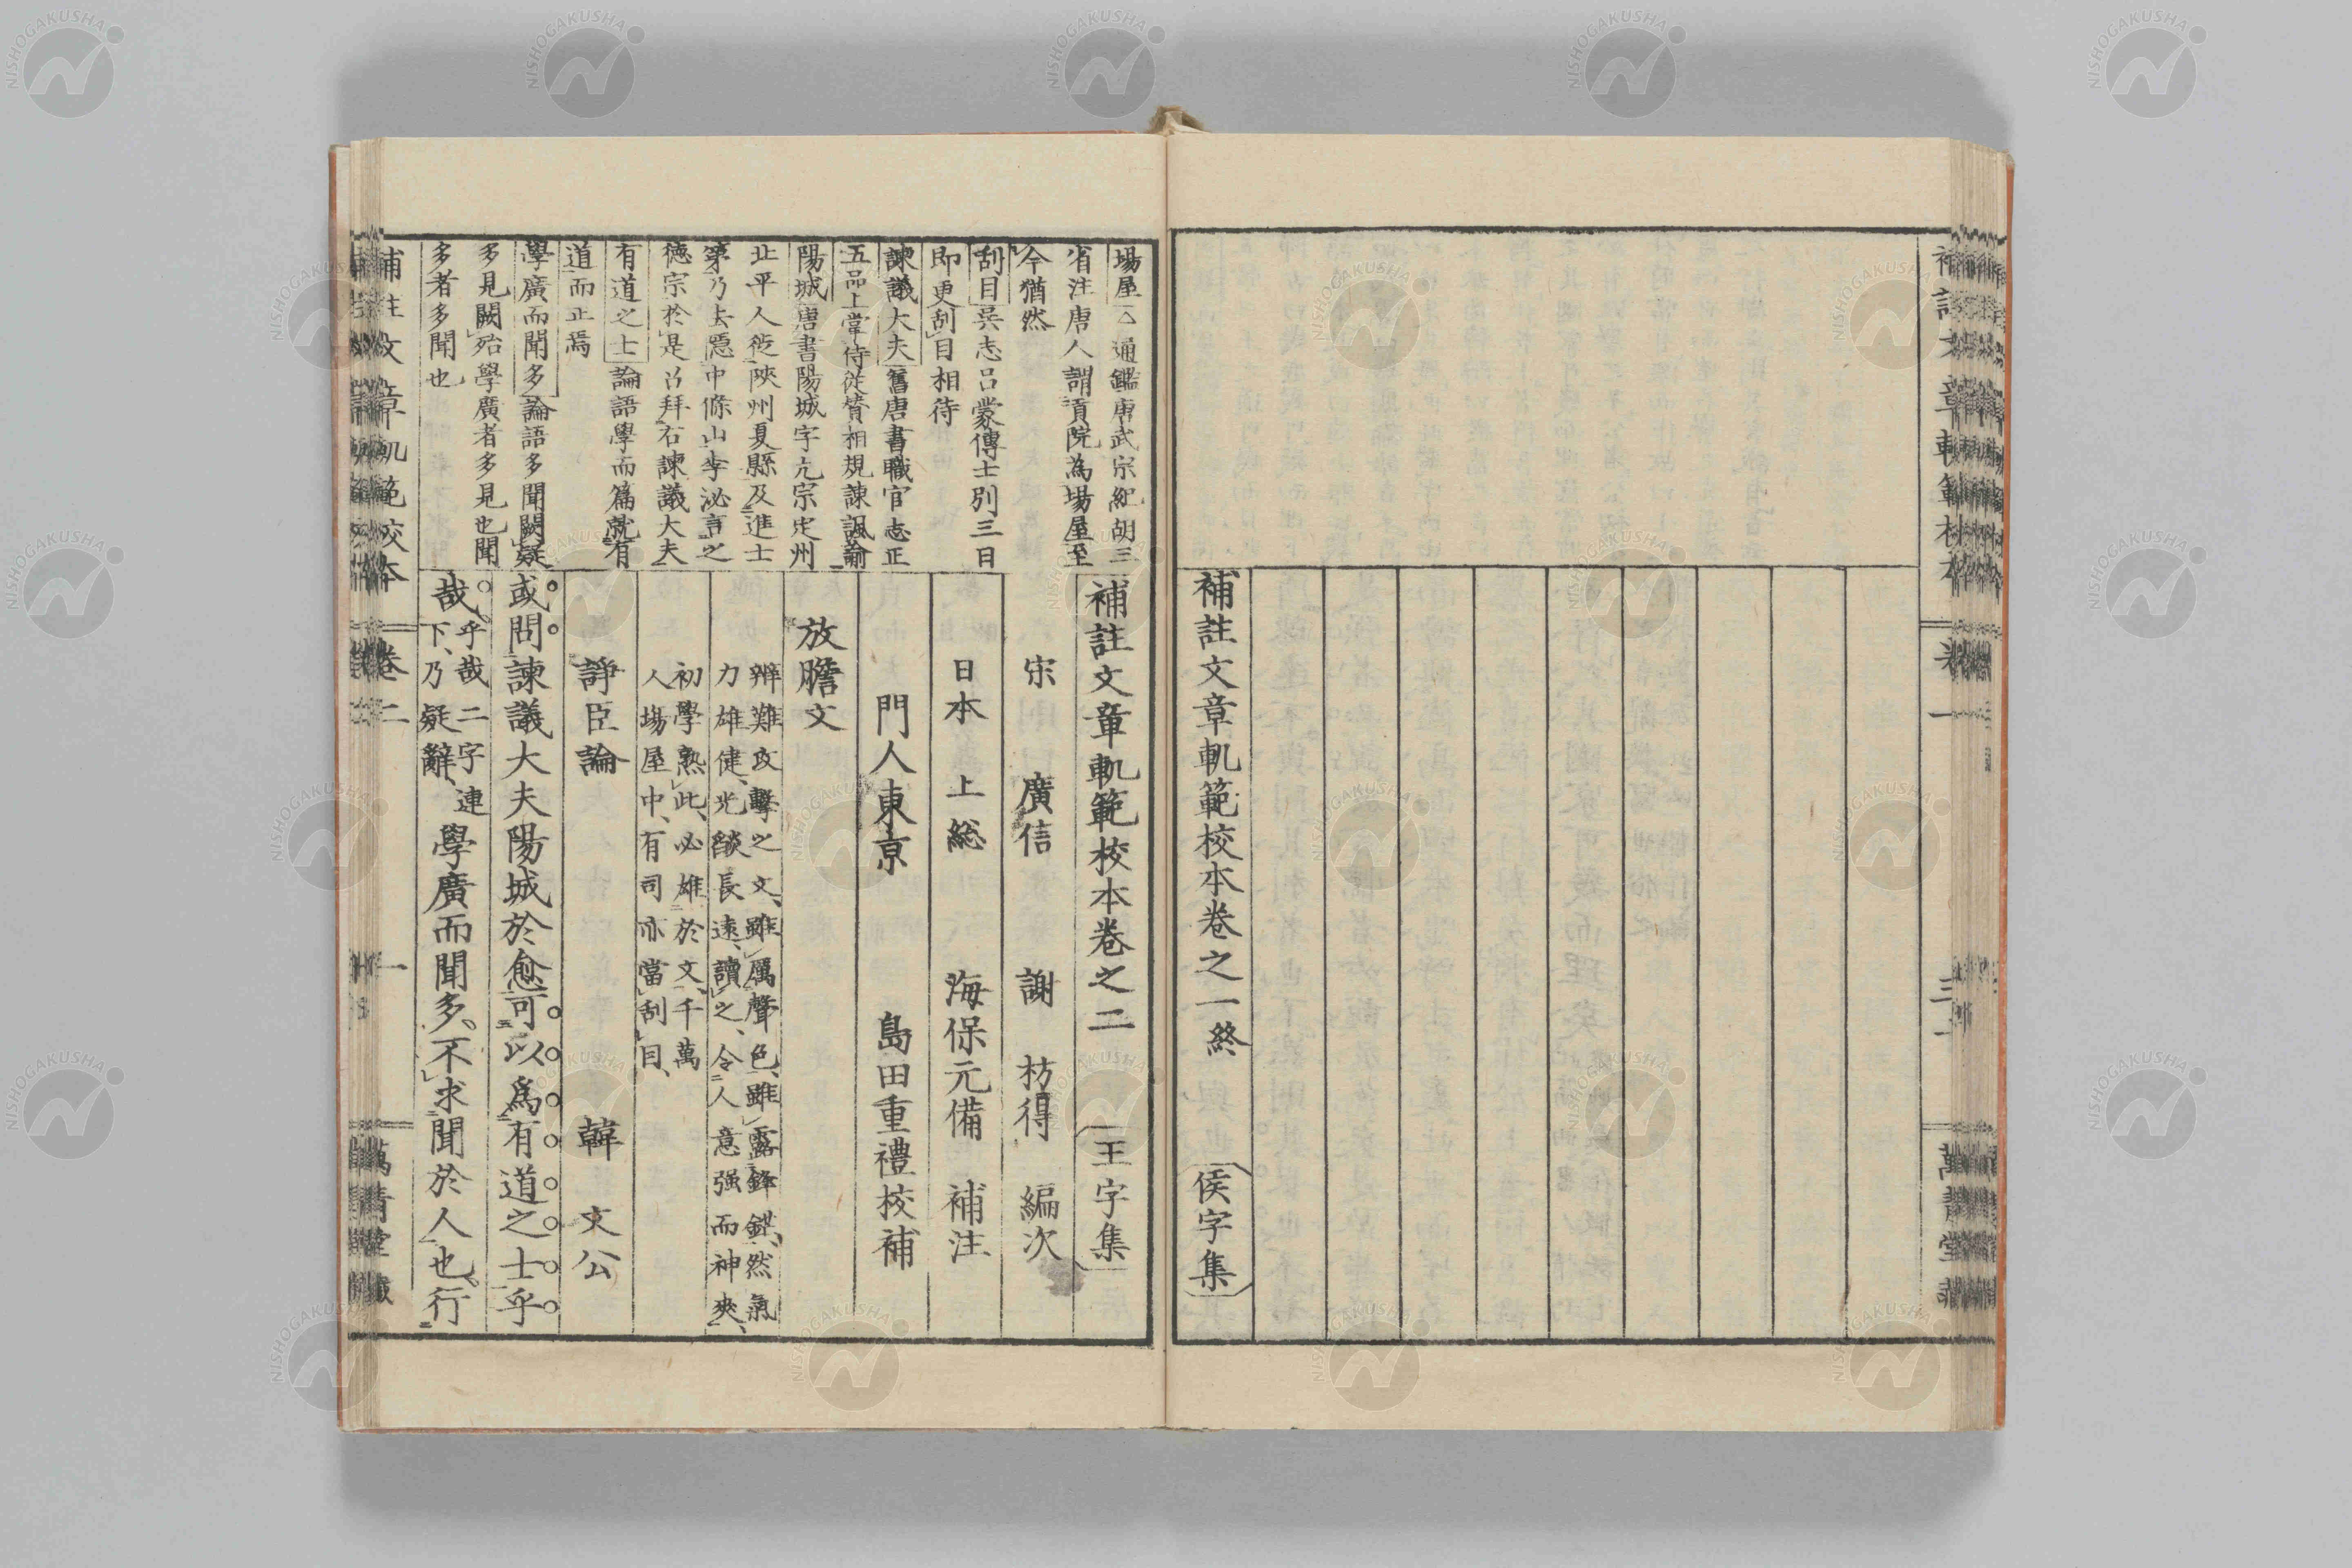 補註文章軌範校本卷之一終
侯字集
補註文章軌範校本卷之二
王字集
宋 廣信 謝 枋得 編次
日本 上総 海保元備 補注
門人東京 島田重禮校補
放膽文
辨難攻擊之文、雖厲聲色、雖露鋒鋩、然氣
力雄健、光燄長遠、讀之、令人意强而神爽、
初學熟此、必雄於文、千萬
人場屋中、有司亦當刮目、
諍臣論
韓 文公
或問諫議大夫陽城於愈可以爲有道之士乎
哉
乎哉二字連
下、乃疑辭、
學廣而聞多、不求聞於人也、行
場屋 通鑑唐武宗紀胡三
省注唐人謂貢院為場屋至
今猶然
刮目吳志呂蒙傳士別三日
即更刮目相待
諫議大夫舊唐書職官志正
五品上掌侍從贊相規諫諷諭
陽城唐書陽城字亢宗定州
北平人徙陝州夏縣及進士
第乃去隱中條山李泌言之
德宗於是召拜右諫議大夫
有道之士論語學而篇就有
道而正焉
學廣而聞多論語多聞闕疑
多見闕殆學廣者多見也聞
多者多聞也
補註文章軌範校本
卷二
一
萬青堂
補註文章軌範校本
卷一
萬青堂
NISHOGAKUSHA